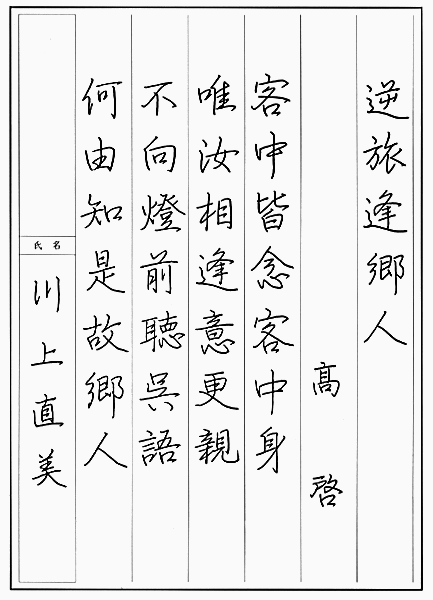 逆旅逢郷人
高啓
客中皆念客中身
唯汝相逢意更親
不向燈前聴呉語
何由知是故郷人
氏名
川上直美